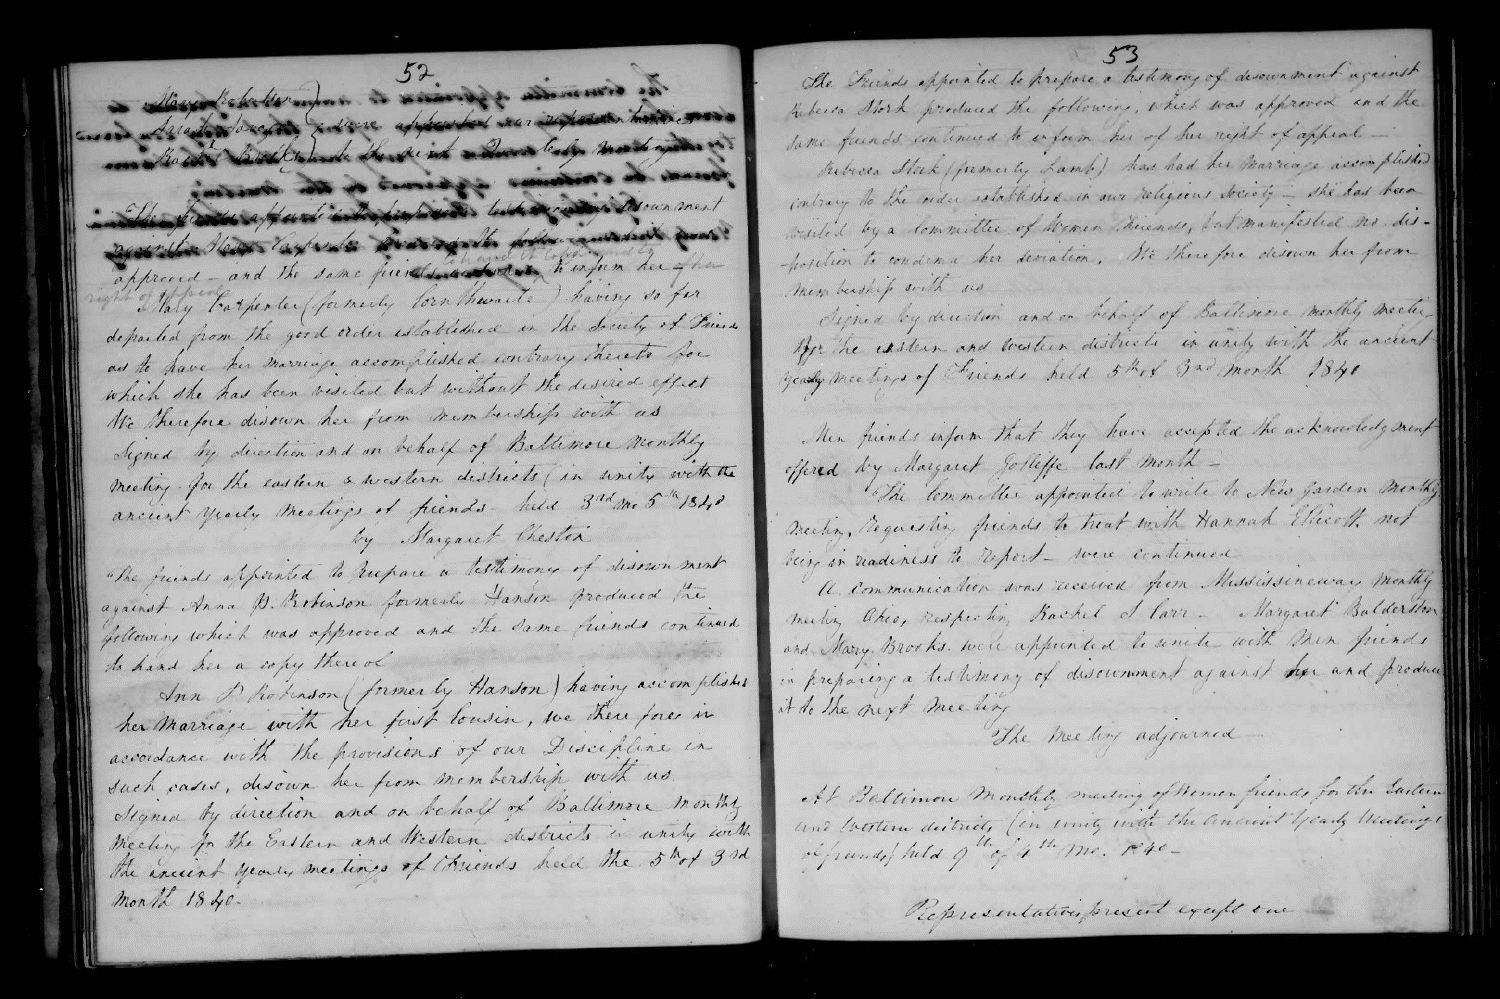 52
Mary Robertson
Sarah
Rachel Brooks were appointed our representatives to the next Quarterly meeting
The friends appointed to prepare a testimony of disownment
against Mary Carpenter produced the following
approved – and the same friends to inform her of her
right of appeal
Mary Carpenter (formerly Cornthwaite) having so far
departed from the good order established in the Society of Friends
as to have her marriage accomplished contrary thereto for
which she has been visited but without the desired effect
We therefore disown her from membership with us
Signed by direction and on behalf of Baltimore Monthly
meeting for the eastern & western districts (in unity with the
ancient yearly meetings of friends held 3rd mo 5th 1840
by Margaret Cheston
The friends appointed to prepare a testimony of disownment
against Anna P. Robinson formerly Hanson produced the
following which was approved and the same friends continued
to hand her a copy thereof
Ann P Robinson (formerly Hanson) having accomplished
her marriage with her first Cousin, we therefore in
accordance with the provisions of our Discipline in
such cases, disown her from membership with us
Signed by direction and on behalf of Baltimore monthly
meeting for the Eastern and Western districts in unity with
the ancient yearly meetings of Friends held the 5th of 3rd
month 1840.
53
The Friends appointed to prepare a testimony of disownment against
Rebecca Stork produced the following, which was approved and the
same friends continued to inform her of her right of appeal —
Rebecca Stork (formerly Lamb) has had her marriage accomplished
contrary to the order established in our religious Society – she has been
visited by a committee of Women Friends, but manifested no dis-
-position to condemn her deviation. We therefore disown her from
membership with us
Signed by direction and on behalf of Baltimore monthly meeting
for the eastern and western districts in unity with the ancient
yearly meetings of Friends held 5th of 3rd month 1840
Men friends inform that they have accepted the acknowledgment
offered by Margaret Joliffe last month –
The Committee appointed to write to New Garden Monthly
meeting, requesting friends to treat with Hannah Ellicott, not
being in readiness to report – were continued
A communication was received from Mississineway Monthly
meeting Ohio, respecting Rachel T Carr – Margaret Balderston
and Mary Brooks were appointed to unite with men friends
in preparing a testimony of disownment against her and produce
it to the next meeting
The meeting adjourned —
At Baltimore Monthly meeting of Women friends for the Eastern
and Western districts (in unity with the Ancient Yearly Meetings
of friends) held 9th of 4th Mo. 1840 –
Representatives present except one